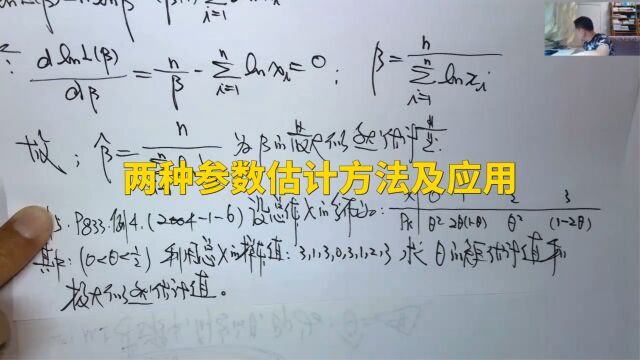 lnL(β)
d lnL(β)/dβ = n/β - Σ(i=1→n) ln xᵢ = 0 ; β = n/Σ(i=1→n) ln xᵢ
故 ; β̂ = n/ 为β的极大似然估计量.
两种参数估计方法及应用
5. P833.例4.(2004-1-6) 设总体X的分布为: X 0 1 2 3
Pk θ² 2θ(1-θ) θ² (1-2θ)
其中: (0<θ<1/2) 利用总X的样本值: 3,1,3,0,3,1,2,3 , 求 θ的矩估计值和
极大似然估计值。